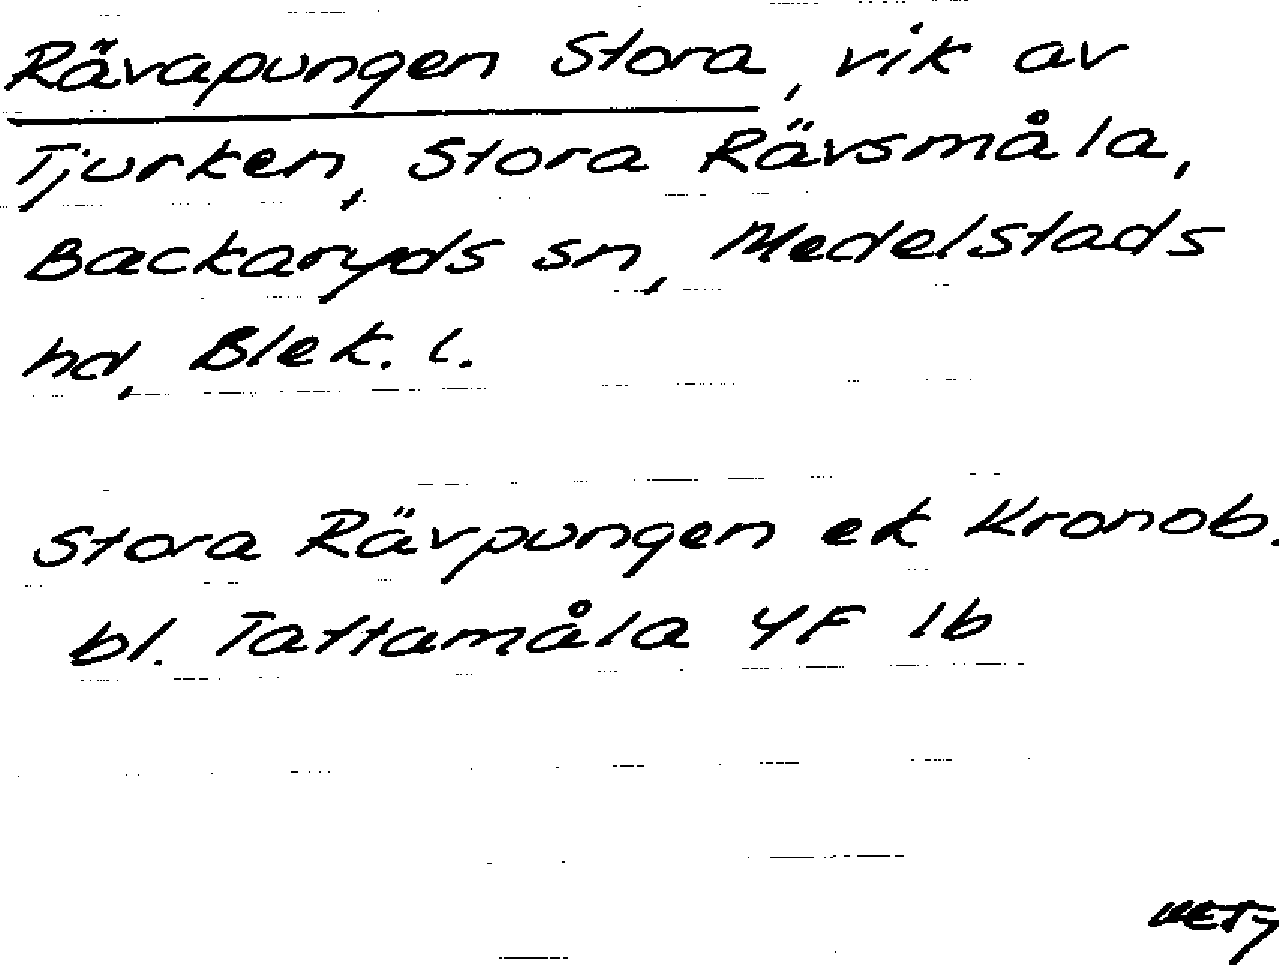 Rävapungen Stora, vik av
Tjurken, Stora Rävsmåla,
Backaryds sn, Medelstads
hd, Blek. l.
Stora Rävpungen ek Kronob.
bl. Tattamåla 4F 1b